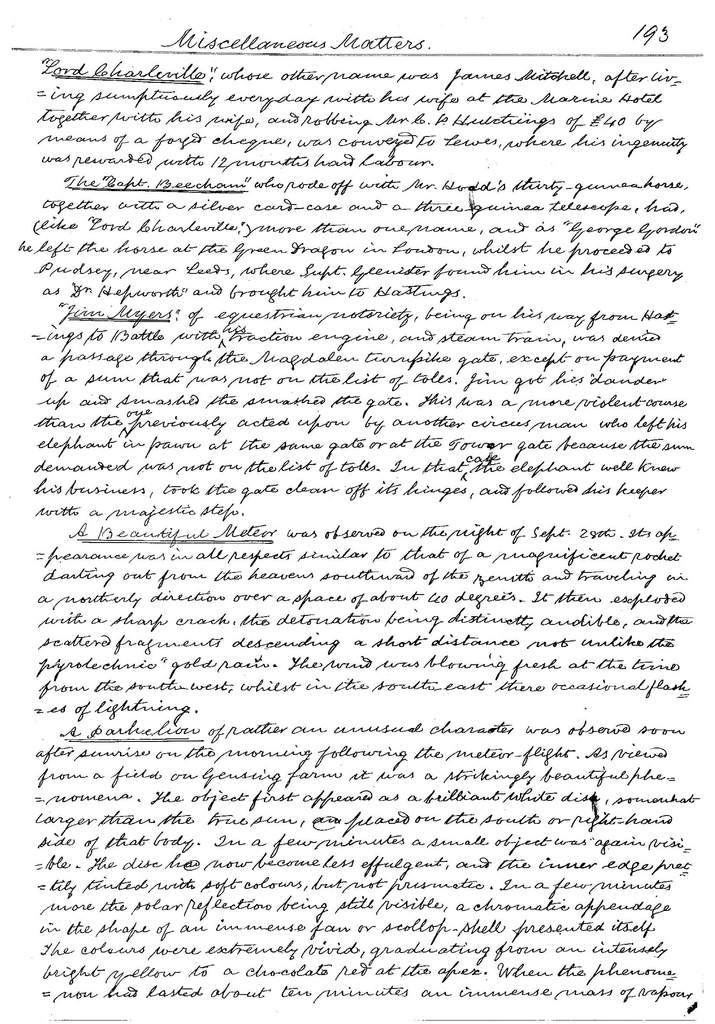 Miscellaneous Matters. 193
"Lord Charleville", whose other name was James Mitchell, after liv-
=ing sumptuously everyday with his wife at the Marine Hotel
together with his wife, and robbing Mr. C. H. Hutchings of £40 by
means of a forged cheque, was conveyed to Lewes, where his ingenuity
was rewarded with 12 months hard labour.
The "Capt. Beecham" who rode off with Mr. Hodd's thirty-guinea horse,
together with a silver card-case and a three guinea telescope, had,
(like "Lord Charleville",) more than one name, and as "George Gordon"
he left the horse at the Green Dragon in London, whilst he proceeded to
Pudsey, near Leeds, where Supt. Glenister found him in his surgery
as "Dr Hepworth" and brought him to Hastings.
"Jim Myers" of equestrian notoriety, being on his way from Hast-
=ings to Battle with his traction engine, and steam train, was denied
a passage through the Magdalen turnpike gate, except on payment
of a sum that was not on the list of tolls. Jim got his "dander"
up and smashed the smashed the gate. This was a more violent course
than the one previously acted upon by another circus man who left his
elephant in pawn at the same gate or at the Tower gate because the sum
demanded was not on the list of tolls. In that case the elephant well knew
his business, took the gate clean off its hinges, and followed his keeper
with a majestic step.
A Beautiful Meteor was observed on the night of Sept. 28th. Its ap-
=pearance was in all respects similar to that of a magnificent rocket
darting out from the heavens southward of the zenith and traveling in
a northerly direction over a space of about 40 degrees. It then exploded
with a sharp crack, the detonation being distinctly audible, and the
scattered fragments descending a short distance not unlike the
pyrotechnic "gold rain. The wind was blowing fresh at the time
from the south west, whilst in the south-east there occasional flash-
=es of lightning.
A Parhelion of rather an unusual character was observed soon
after sunrise on the morning following the meteor-flight. As viewed
from a field on Gensing farm it was a strikingly beautiful phe-
=nomena. The object first appeared as a brilliant white disc, somewhat
larger than the true sun, placed on the south or right-hand
side of that body. In a few minutes a small object was again visi-
=ble. The disc had now become less effulgent, and the inner edge pret-
=tily tinted with soft colours, but not prismatic. In a few minutes
more the solar reflection being still visible, a chromatic appendage
in the shape of an immense fan or scollop-shell presented itself.
The colours were extremely vivid, graduating from an intensely
bright yellow to a chocolate red at the apex. When the phenome-
=non had lasted about ten minutes an immense mass of vapour